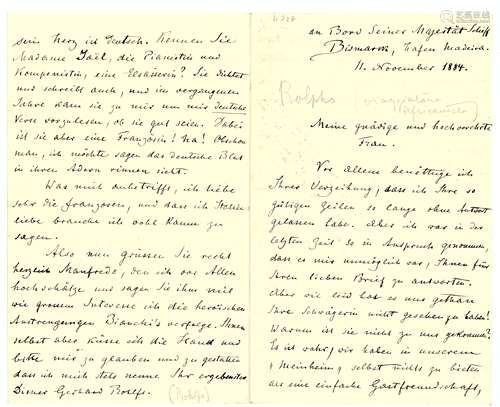 an Bord Seiner Majestät Schiff
Bismarck, Hafen Madeira.
11. November 1884.
Rolphs
Meine gnädige und hochverehrte
Frau.
Vor allem benöthige ich
Ihrer Verzeihung, dass ich Ihre so
gütigen Zeilen so lange ohne Antwort
gelassen habe. Aber ich war in der
letzten Zeit so in Anspruch genommen,
dass es mir unmöglich war, Ihnen für
Ihren lieben Brief zu antworten.
Aber wie leid hat es uns gethan
Ihre Schwägerin nicht gesehen zu haben!
Warum ist sie nicht zu uns gekommen?
Es ist wahr, wir haben in unserem
"Meinheim" selbst nichts zu bieten
als eine einfache Gastfreundschaft,
sein Herz ist deutsch. Kennen Sie
Madame Jaël, die Pianistin und
Komponistin, eine Elsäserin? Sie dichtet
und schreibt auch, und im vergangenen
Jahre kam sie zu mir um mir deutsche
Verse vorzulesen, ob sie gut seien. Dabei
ist sie aber eine Französin! Na! Obschon
man, ich möchte sagen das deutsche Blut
in ihren Adern rinnen sieht.
Was mich anbetrifft, ich liebe
sehr die Franzosen, und dass ich Italien
liebe brauche ich wohl kaum zu
sagen.
Also nun grüssen Sie recht
herzlich Manfredo, den ich vor Allen
hochschätze und sagen Sie ihm mit
wie grossem Interesse ich die heroischen
Anstrengungen Bianchi's verfolge. Ihnen
selbst aber küsse ich die Hand und
bitte mir zu glauben und zu gestatten
dass ich mich stets nenne Ihr ergebenster
Diener Gerhard Rohlfs.
(Rohlfs)